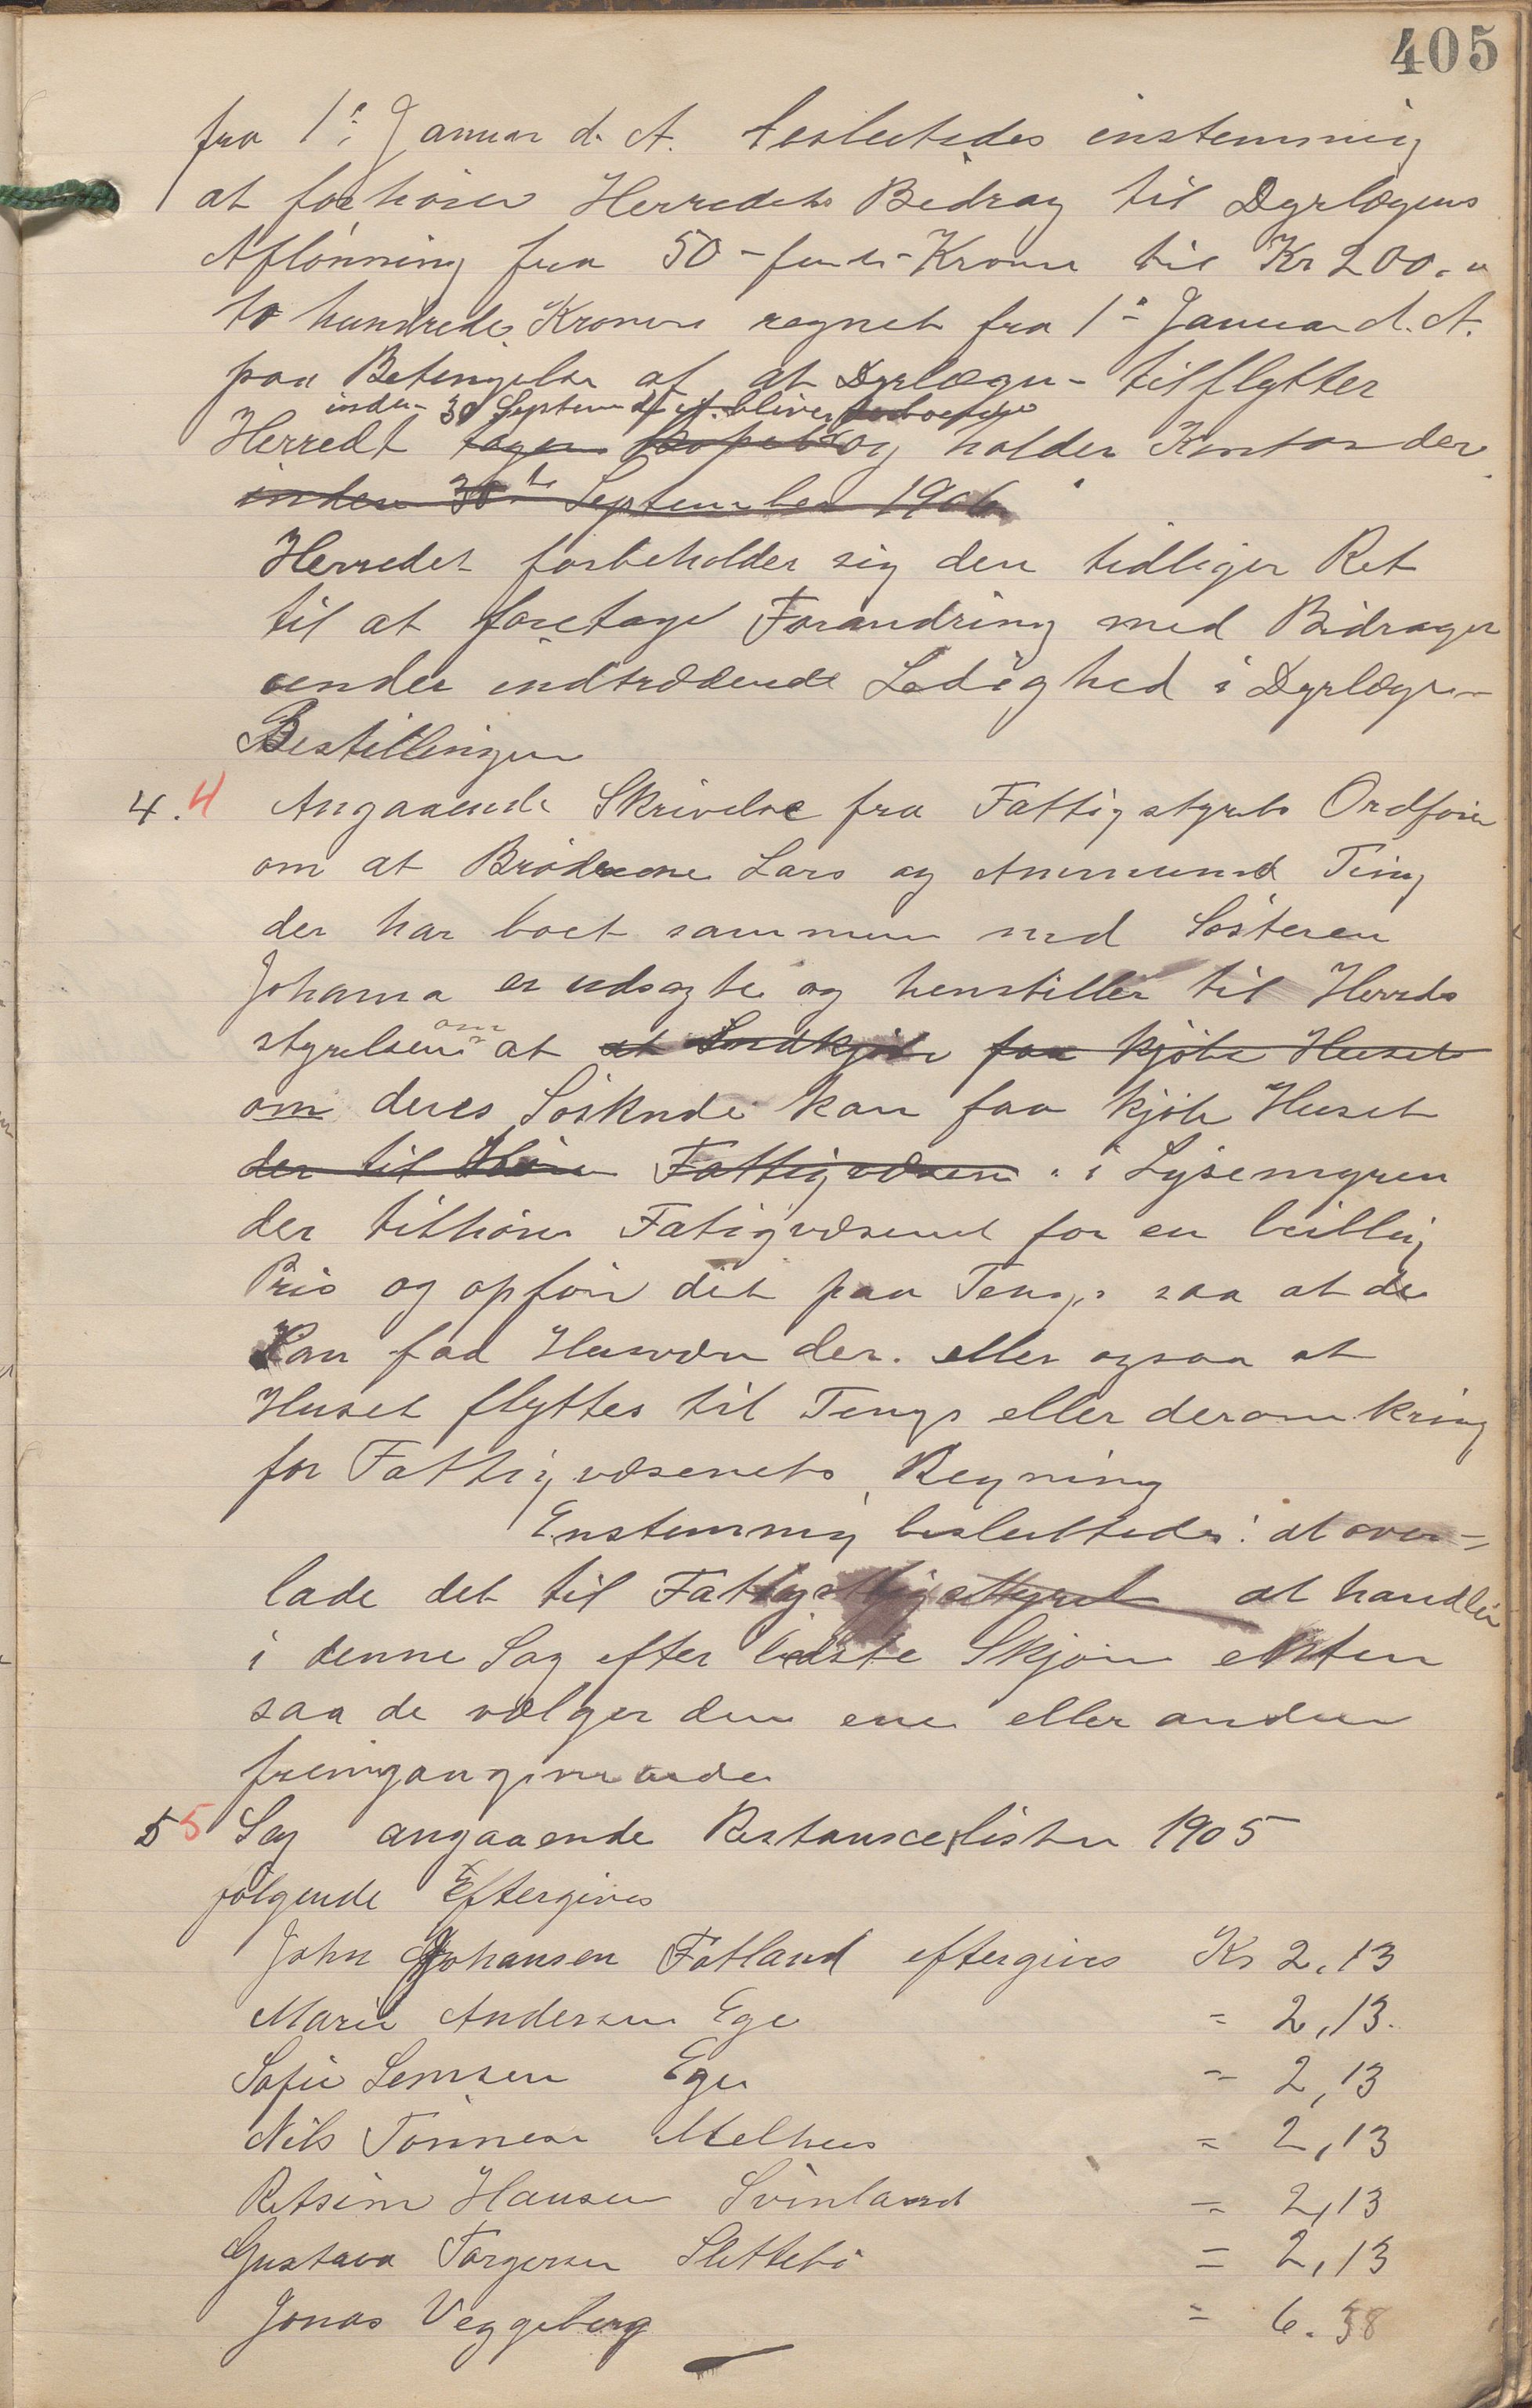 405
fra 1ste Januar d. A. besluttedes enstemmig
at forhöie Herredets Bidrag til Dyrlægens
Aflönning fra 50 - femti - Kroner til Kr 200,"
to hundrede Kroner regnet fra 1ste Januar d. A.
paa Betingelse af at Dyrlægen tilflytter
inden 30 September d. A. bliver
Herredt tager og holder Kontor der
inden 30te September 1906
Herredet forbeholder sig den tidligere Ret
til at foretage Forandring med Bidraget
under indtrædende Ledighed i Dyrlæge-
Bestillingen
4. 4 Angaaende Skrivelse fra Fattigstyrets Ordförer
om at Brödrene Lars og Ammund Teng
der har boet sammen med Sösteren
Johanna er udsagte og henstiller til Herreds
styrelsen om at at Indkjöbe faa kjöbe Huset
om deres Söskende kan faa kjöbe Huset
der tilhörer Fattigvæsenet i Lysemyren
der tilhörer Fatigvæsenet for en billig
Pris og opföre det paa Tengs saa at de
kan faa Husvære der. eller ogsaa at
Huset flyttes til Tengs eller deromkring
for Fattigvæsenets Regning
Enstemmig besluttedes: at over-
lade det til Fattigstyret at handle
i denne Sag efter bedste Skjön enten
saa de vælger den ene eller anden
fremgangsmaade
5 5 Sag angaaende Restancelisten 1905
fölgende Eftergives
John Johansen Fotland eftergives Kr 2,13
Marie Andersen Ege = 2,13.
Sofie Semsen Ege = 2,13
Nils Tönnesen Melhus = 2,13
Hansen Svinland = 2,13
Gustava Torgersen Slettebö = 2,13
Jonas Veggeberg = 6.38